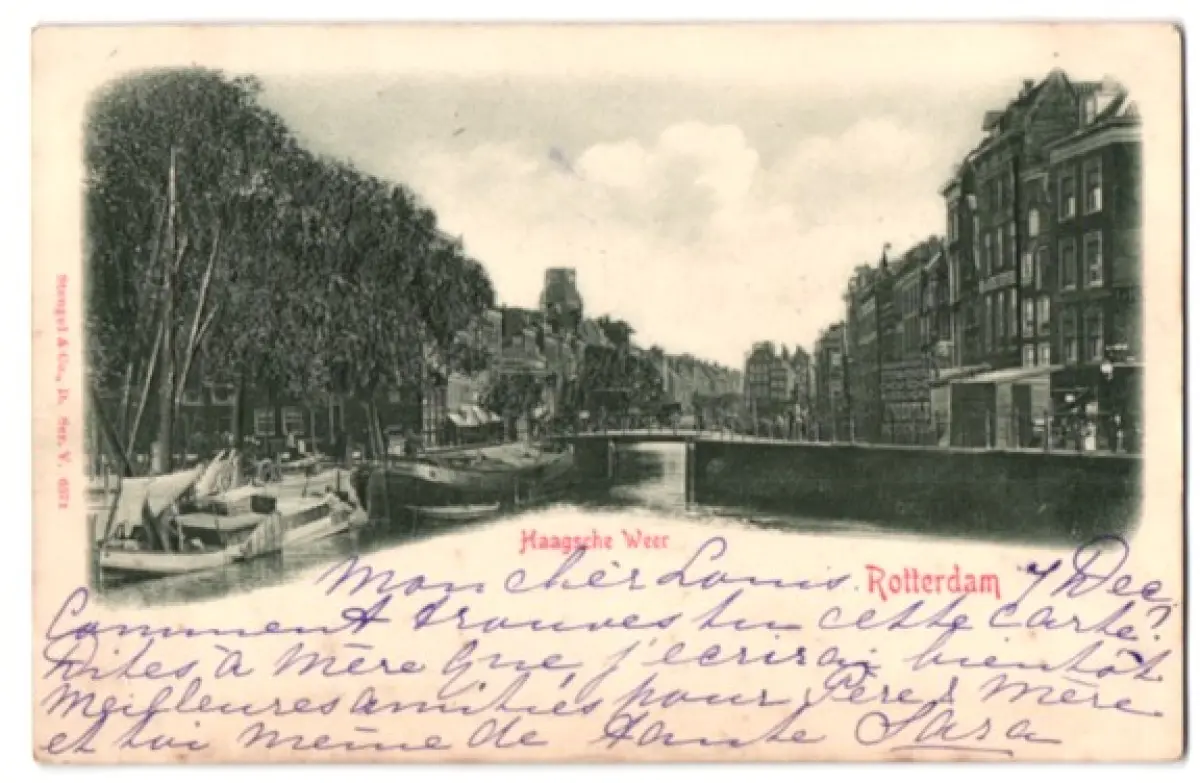 Stengel & Co., D. Ser. V. 6571
Haagsche Weer
Rotterdam
Mon cher Louis. 7 Dec.
Comment trouves tu cette carte?
Dites à mère que j'ecrirai bientôt
Meilleures amitiés pour Père & Mère
et toi même de Tante Sara